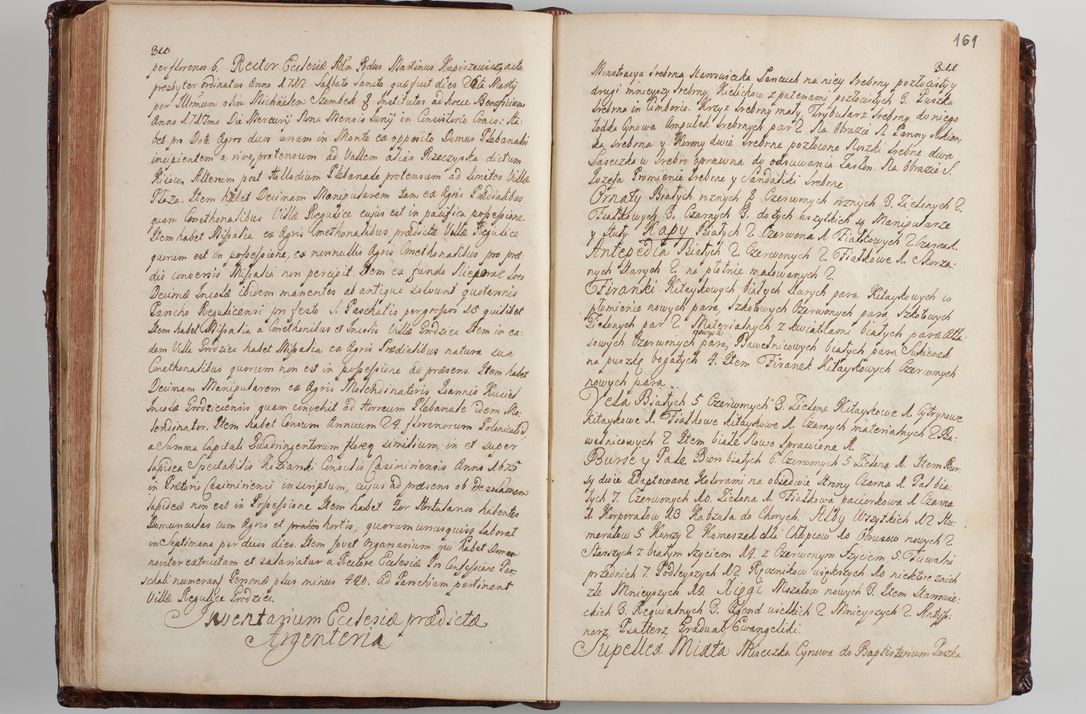 310
per florenos 6. Rector Ecclesiæ Adm Rdus Martinus Kupiszewicz
presbyter ordinatus Anno 1712 Sabbato Sancto qui fuit dies 26ta Martij
per Illmum olim Michaelem Szembek & Institutus ad hocce Beneficium
Anno 1717mo Die Mercurij Mensis Junij in Consistorio Craco: Ha-
bet pro Dote Agros duos unum in Monte ex opposito Domus Plebanalis
incipientem a rivo, protensum ad Vallem alias Rzeczyska dictum
Kiiow. Alterum post Allodium Plebanale protensum ad limites Villæ
Płaza. Item habet Decimam Manipularem tam ex Agris Prædialibus
quam Cmethonalibus Villæ Regulice cujus est in pacifica possessione.
Item habet Missalia ex Agris Cmethonalibus prædictæ Villæ Regulice
quorum est in possessione, ex nonnullis Agris Cmethonalibus pro præ-
dio conversis Missalia non percipit. Item ex fundo
Decimæ Incolæ ibidem manentes ab antiquo solvunt quotannis
Parocho Regulicensi pro festo S. Paschalis per grossos 15 quilibet
Item habet Missalia a Cmethonibus et Incolis Villæ Grodziec Item in ea-
dem Villa Grodziec habet Missalia ex Agris Prædialibus natura sua
Cmethonalibus quorum non est in possessione ad præsens. Item habet
Decimam Manipularem ex Agris Molendinatoris Joannis Kusiel
Incolæ Grodziecensis quam convehit ad Horreum Plebanale idem Mo-
lendinator. Item habet Censum Annuum 24 florenorum Polonicalium
a Summa Capitali Quadringentorum flor similium, in et super
lapidea Spectabilis Consulis Casimiriensis Anno 1625
in Prætorio Casimiriensi inscriptum, cujus ad præsens ob Desolationem
lapideæ non est in Possessione. Item habet Hortulanos habentes
Domunculas cum Agris et pratis hortis, quorum unusquisq laborat
in Septimana per duos dies. Item fovet Organarium qui habet Domum
noviter extructam et salariatur a Rectore Ecclesiæ. In Confessione Pas-
chali numerant Personæ plus minus 440. Ad Parochiam pertinent
Villæ Regulice Grodziec.
Inventarium Ecclesiæ prædictæ
Argenteria
161
311
Monstracya srebrna Staroswiecka Łancuch na niey srebrny pozłocisty y
drugi mnieyszy srebrny, Kielichow z patenami pozłocistych 3. Puszka
srebrna in Ciborio. Krzyz srebrny mały, Trybularz srebrny do niego
Łodka Cynowa Ampułek srebrnych par 2. Na Obrazie N. Panny Sukien-
ka srebrna y Korony dwie srebrne pozłocone Aniołki srebrne dwa
Laseczka w srebro oprawna do odsuwania Zasłon. Na Obrazie S.
Jozefa Promienie srebrne y Sandałki srebrne
Ornaty Białych roznych 8 Czerwonych roznych 3. Zielonych 2.
Fiałkowych 3. Czarnych 3. do tych wszytkich są Manipularze
y Stuły. Kapy Białych 2. Czerwona 1. Fiałkowych 2 Czarna 1.
Antepedia Białych 2. Czerwonych 2. Fiałkowe 1. Skorza-
nych Starych 2. na płotnie malowanych 2.
Firanki Kitaykowych białych starych para Kitaykowych w
płomienie nowych para, Szkotowych Czerwonych para, Szkotowych
Zielonych par 2. Materialnych z kwiatkami białych para Atła-
sowych Czerwonych nowych para, Bawełnicowych białych para Sukienek
na puszkę bogatych 4. Item Firanek Kitaykowych Czerwonych
nowych para.
Vela Białych 5 Czerwonych 3. Zielone Kitaykowe 1. Cytrynowe
Kitaykowe 1. Fiałkowe Kitaykowe 1. Czarnych materialnych 2 Ba-
wełnicowych 2 Item białe Nowo Sprawione 1.
Bursy y Pale Burs białych 6 Czerwonych 5 Zielona 1. Item Bur-
sy dwie adaptowane Kolorami na obiedwie strony Czarna 1. Pal bia-
łych 7. Czerwonych 10. Zielona 1. Fiałkowe pacierkowa 1 Czarna
1 Korporałow 13 Kobzala do Chorych. Alby Wszytkich 12 Hu-
merałow 5 Komzy 2 Komeszek dla Chłopcow 10 Obrusow nowych 2
Starszych z białym Szyciem 14. z Czerwonym Szyciem 5 Tuwalni
przednich 7. Podleyszych 12 Ręcznikow większych 10 niektore znich
złe Mnieyszych 10. Xięgi Mszałow nowych 3. Item Starowie-
ckich 3. Requialnych 3. Agend wielkich 2 Mnieyszych 2 Antyfo-
narz, Psałterz Graduał, Ewangeliki.
Supellex Miáta Miseczka Cynowa do Baptisterium Taszka